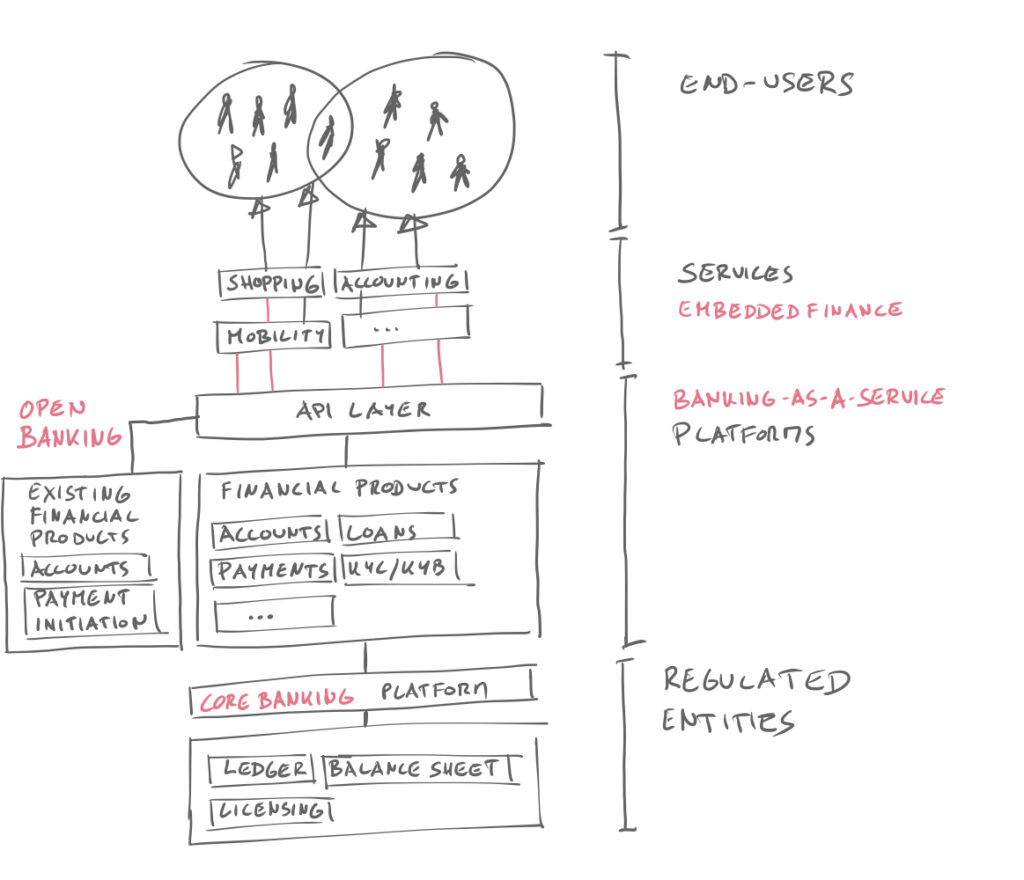 END-USERS
SHOPPING
ACCOUNTING
MOBILITY
...
SERVICES
EMBEDDED FINANCE
OPEN
BANKING
API LAYER
BANKING-AS-A-SERVICE
PLATFORMS
EXISTING
FINANCIAL
PRODUCTS
ACCOUNTS
PAYMENT
INITIATION
FINANCIAL PRODUCTS
ACCOUNTS
LOANS
PAYMENTS
KYC/KYB
...
CORE BANKING PLATFORM
REGULATED
ENTITIES
LEDGER
BALANCE SHEET
LICENSING